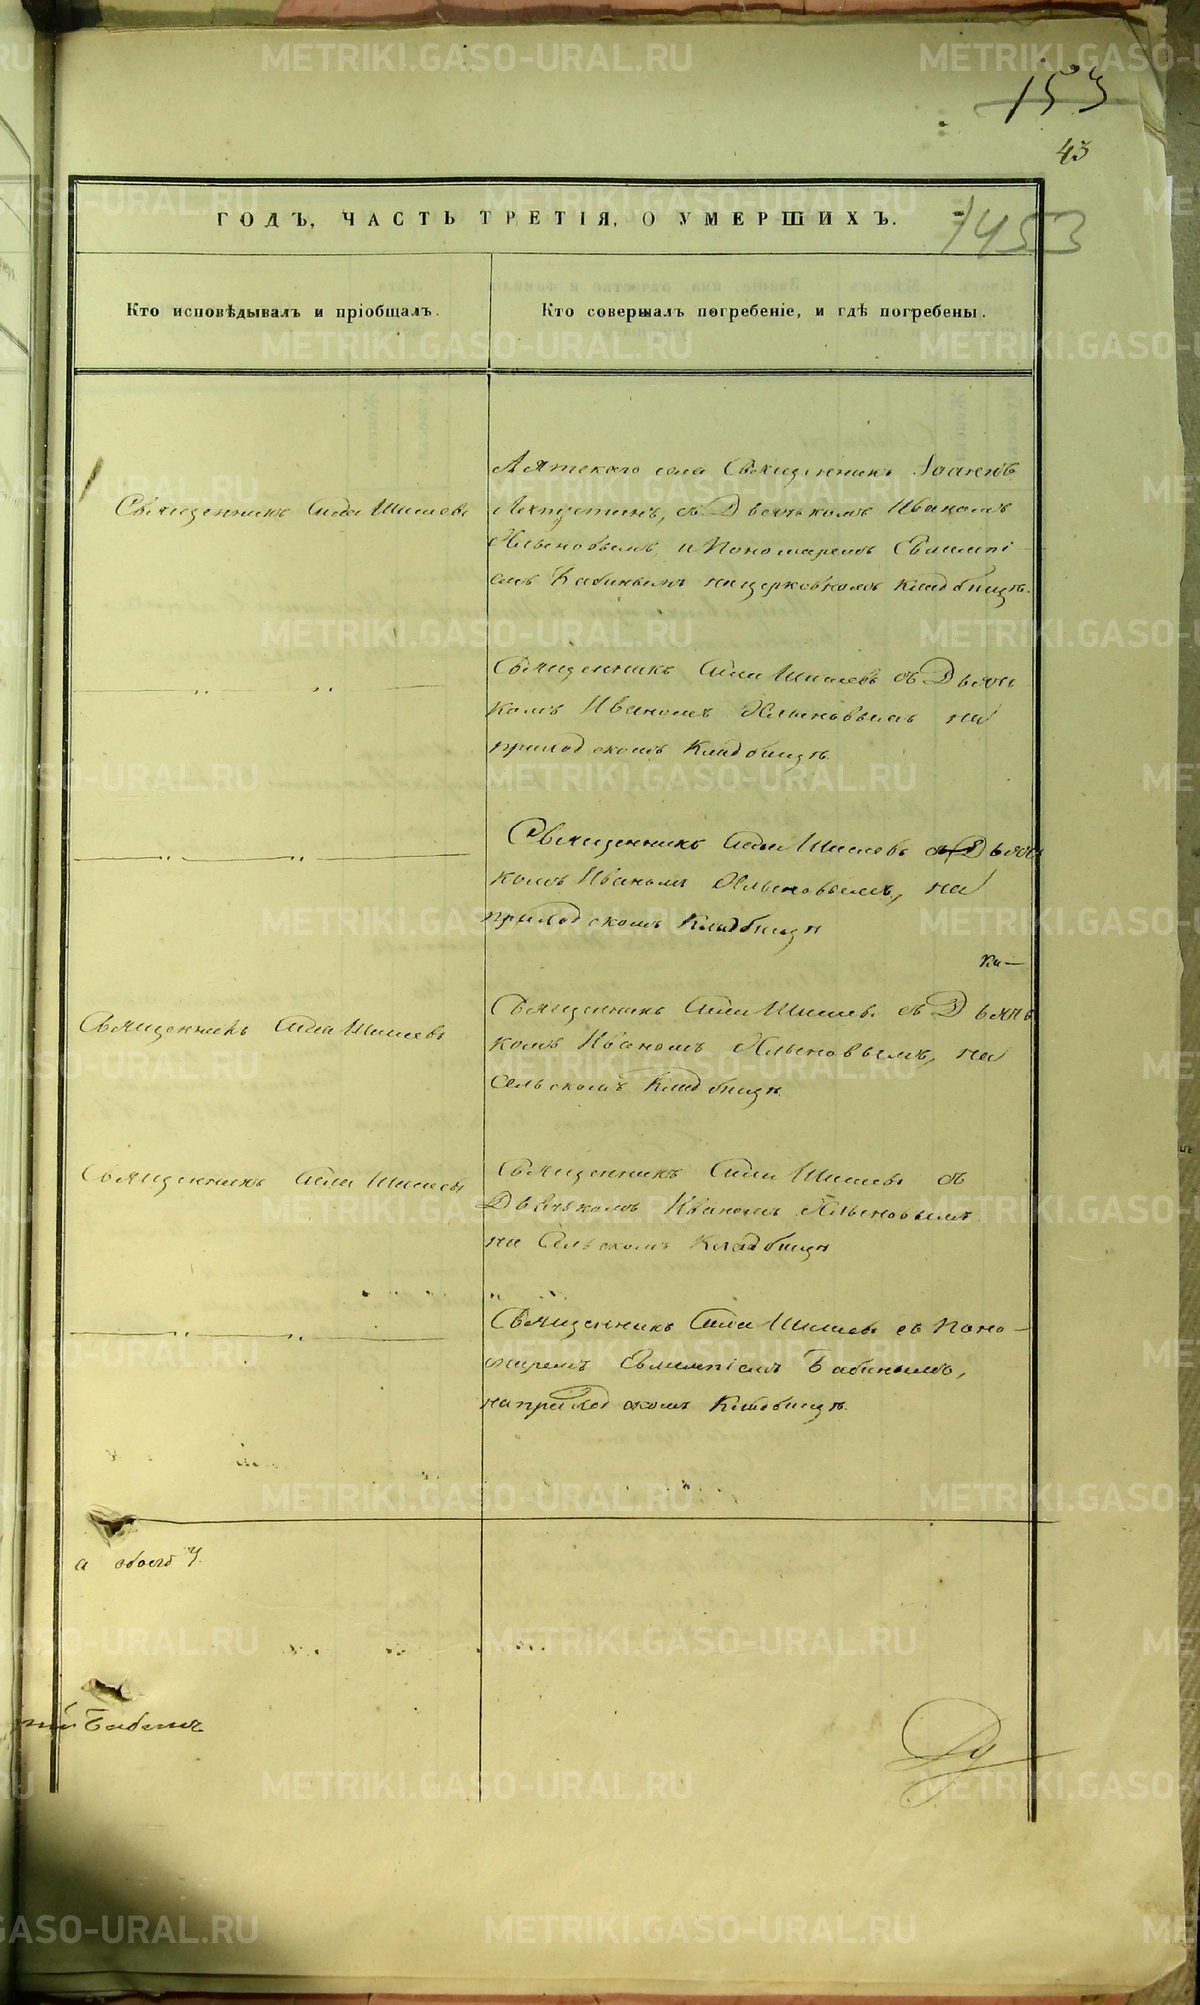 153
43
ГОДЪ, ЧАСТЬ ТРЕТІЯ, О УМЕРШИХЪ.
1453
Кто исповѣдывалъ и пріобщалъ.
Кто совершалъ погребеніе, и гдѣ погребены.
Священникъ Аѳла Шишевъ
Аятскаго села Священникъ Іоаннъ
съ Дьячькомъ Иваномъ
Хлыновымъ и Пономаремъ Евлампі-
емъ Бабинымъ на церковномъ кладбищѣ.
Священникъ Шишевъ съ Дьяч
комъ Иваномъ Хлыновымъ на
приходскомъ кладбищѣ.
Священникъ Шишевъ съ Дьяч
комъ Иваномъ Хлыновымъ, на
приходскомъ Кладбищѣ
Священникъ Шишевъ
Священникъ Шишевъ съ Дьячь
комъ Иваномъ Хлыновымъ, на
сельскомъ Кладбищѣ.
Священникъ Шишевъ
Священникъ Шишевъ съ
Дьячькомъ Иваномъ Хлыновымъ
на Сельскомъ Кладбищѣ
Священникъ Шишевъ съ Поно-
маремъ Евлампіемъ Бабинымъ,
на приходскомъ Кладбищѣ.
а обоего
Бабинъ
METRIKI.GASO-URAL.RU